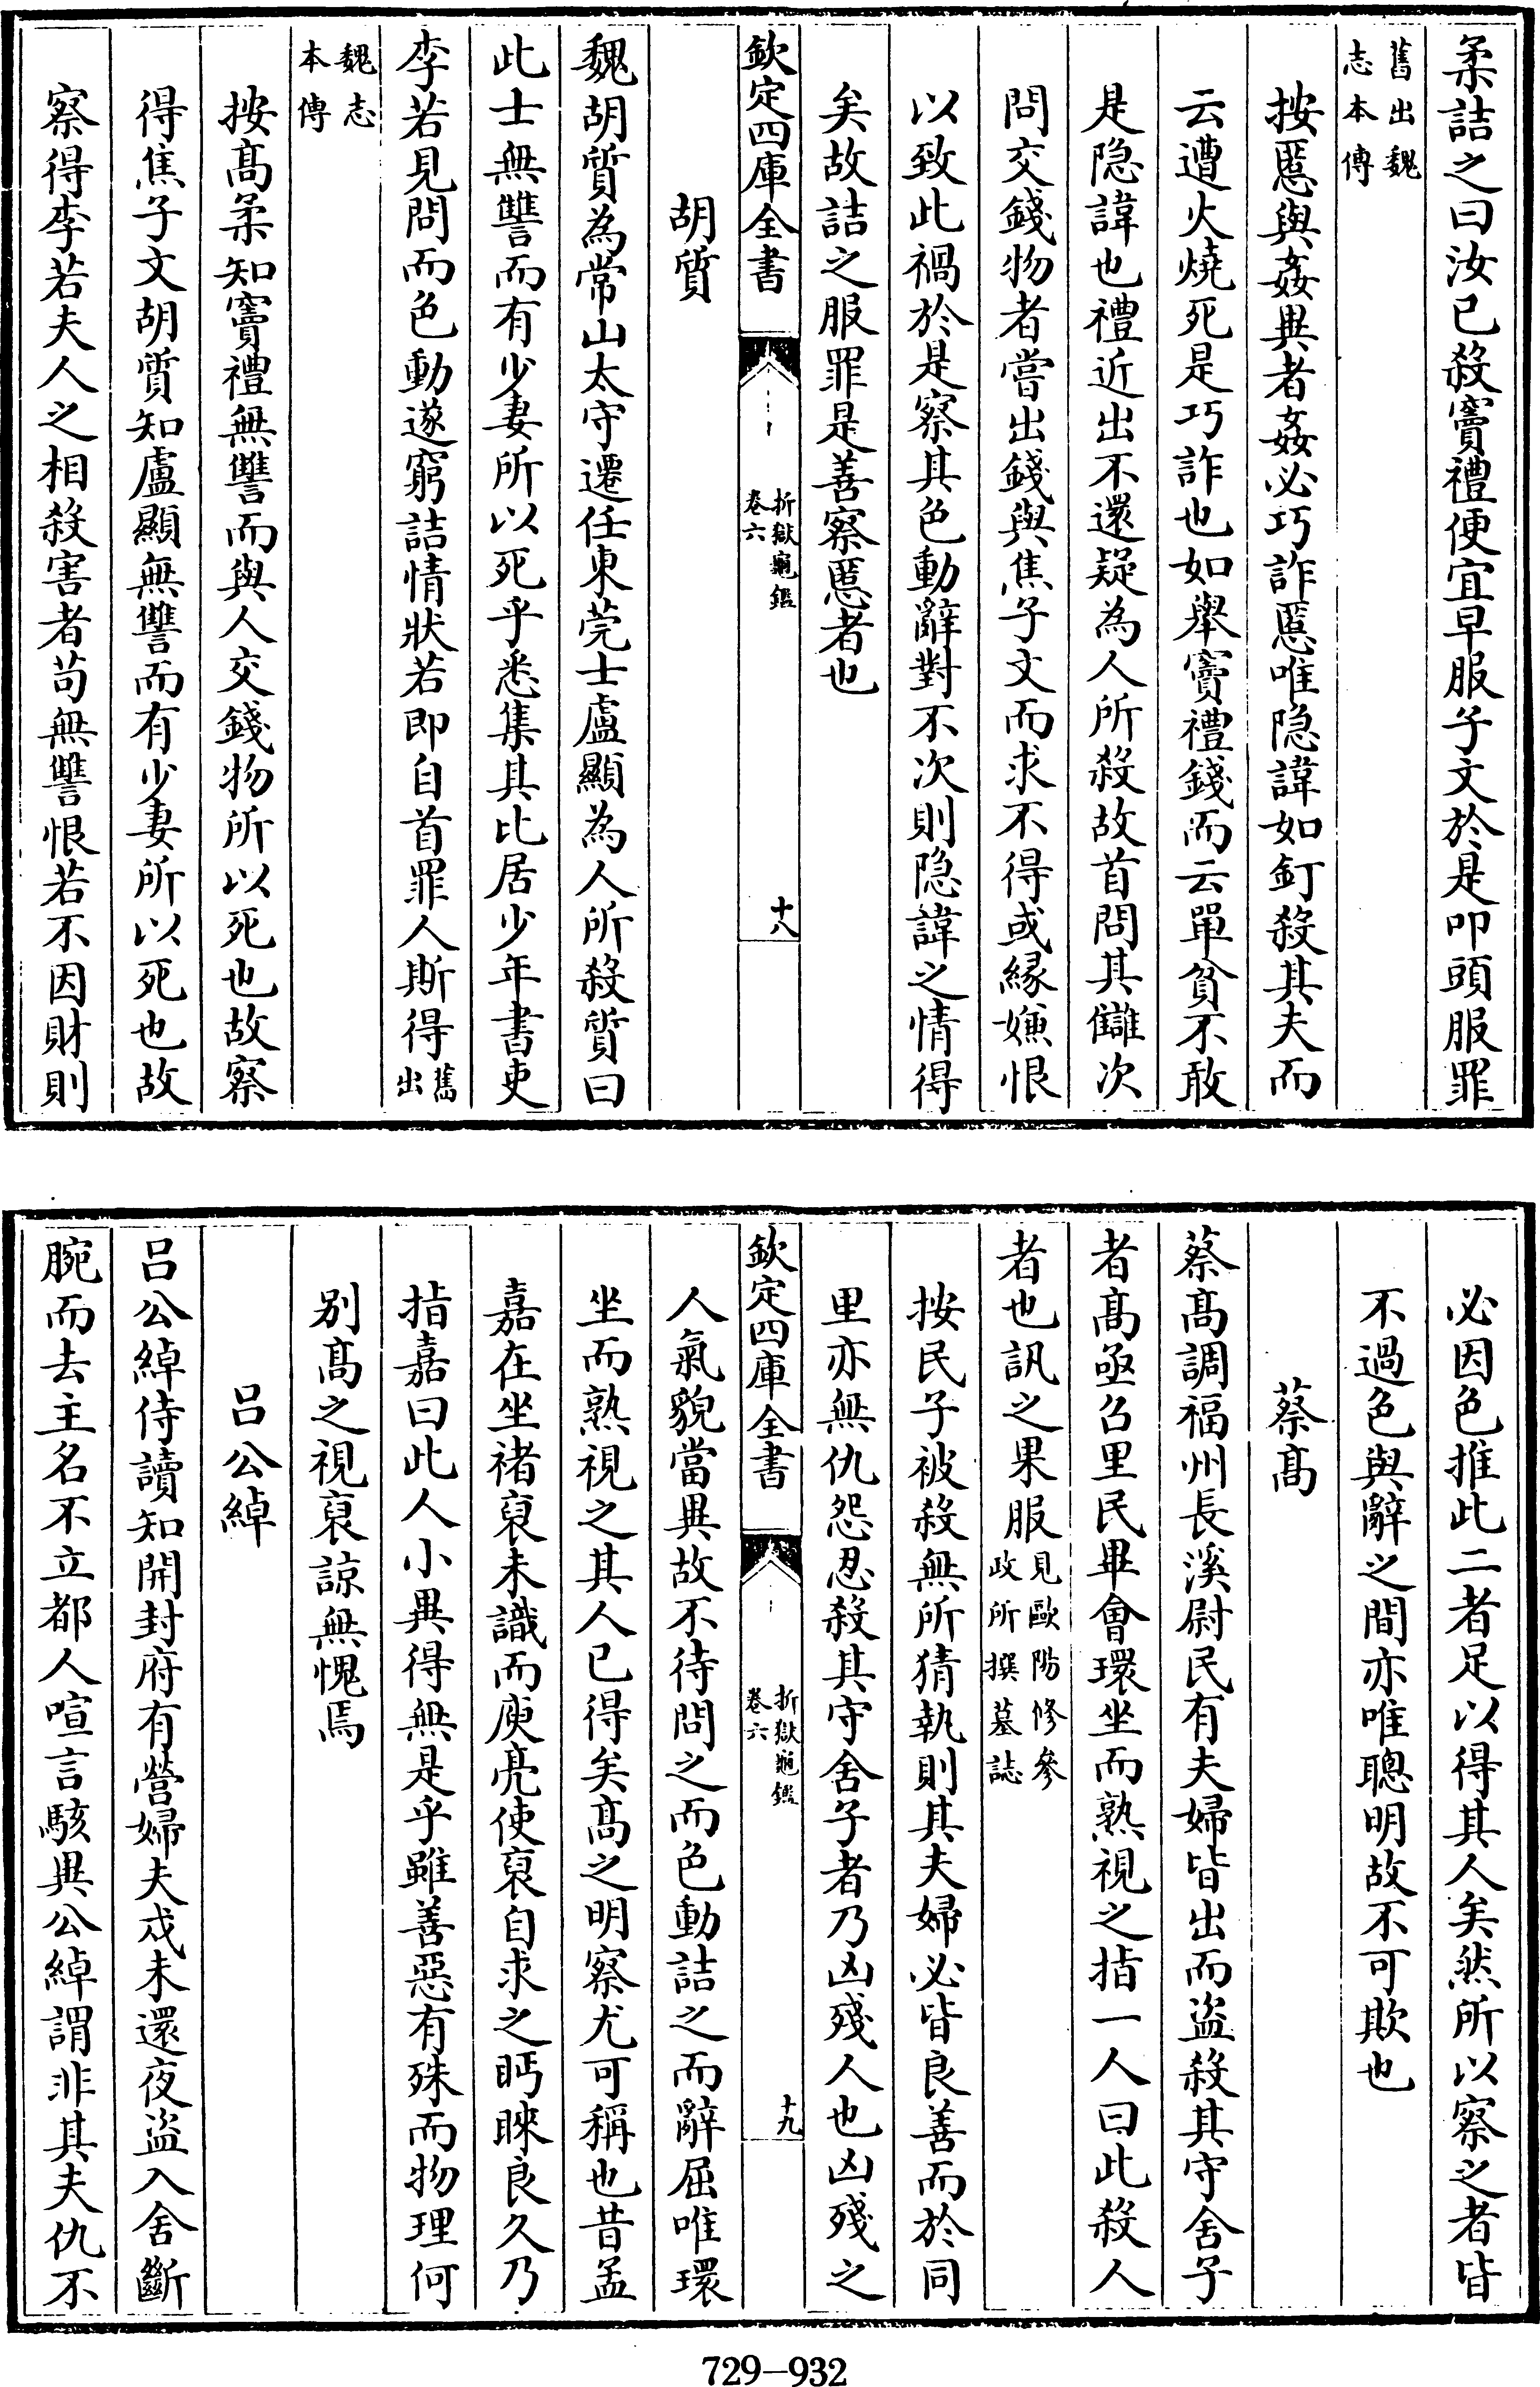 柔詰之曰汝已殺竇禮便宜早服子文於是叩頭服罪
舊出魏
志本傳
按慝與姦異者姦必巧詐慝唯隠諱如釘殺其夫而
云遭火燒死是巧詐也如舉竇禮錢而云單貧不敢
是隠諱也禮近出不還疑為人所殺故首問其讎次
問交錢物者嘗出錢與焦子文而求不得或緣嫌恨
以致此禍於是察其色動辭對不次則隠諱之情得
矣故詰之服罪是善察慝者也
欽定四庫全書
折獄龜鑑
卷六
十八
胡質
魏胡質為常山太守遷任東莞士盧顯為人所殺質曰
此士無讐而有少妻所以死乎悉集其比居少年書吏
李若見問而色動遂窮詰情狀若即自首罪人斯得舊
出
魏志
本傳
按髙柔知竇禮無讐而與人交錢物所以死也故察
得焦子文胡質知盧顯無讐而有少妻所以死也故
察得李若夫人之相殺害者茍無讐恨若不因財則
必因色推此二者足以得其人矣然所以察之者皆
不過色與辭之間亦唯聰明故不可欺也
蔡髙
蔡髙調福州長溪尉民有夫婦皆出而盜殺其守舍子
者髙亟召里民畢會環坐而熟視之指一人曰此殺人
者也訊之果服見歐陽修參
政所撰墓誌
按民子被殺無所猜執則其夫婦必皆良善而於同
里亦無仇怨忍殺其守舍子者乃凶殘人也凶殘之
欽定四庫全書
折獄龜鑑
卷六
十九
人氣貌當異故不待問之而色動詰之而辭屈唯環
坐而熟視之其人已得矣髙之明察尤可稱也昔孟
嘉在坐褚裒未識而庾亮使裒自求之眄睞良久乃
指嘉曰此人小異得無是乎雖善惡有殊而物理何
別髙之視裒諒無愧焉
吕公綽
吕公綽侍讀知開封府有營婦夫戍未還夜盜入舍斷
腕而去主名不立都人喧言駭異公綽謂非其夫仇不
729-932